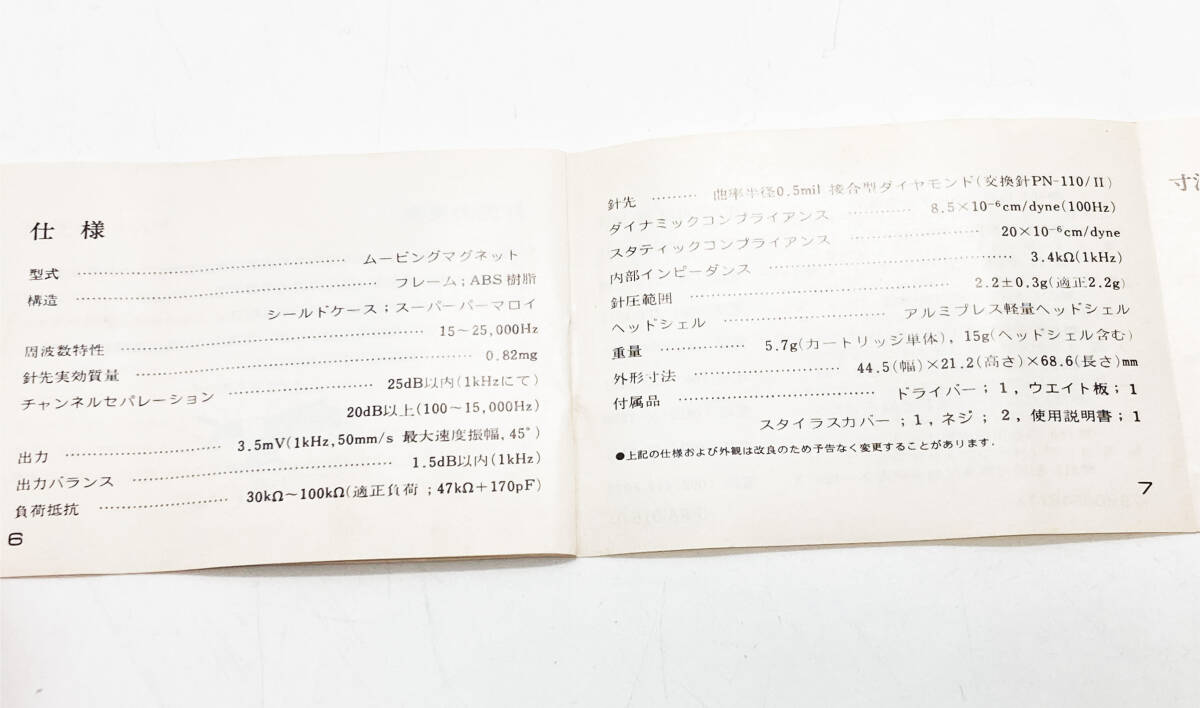 仕様
型式 ムービングマグネット
構造 フレーム；ABS樹脂
シールドケース；スーパーパーマロイ
周波数特性 15～25,000Hz
針先実効質量 0.82mg
チャンネルセパレーション 25dB以内(1kHzにて)
20dB以上(100～15,000Hz)
出力 3.5mV(1kHz,50mm/s 最大速度振幅,45°)
出力バランス 1.5dB以内(1kHz)
負荷抵抗 30kΩ～100kΩ(適正負荷；47kΩ+170pF)
6
針先 曲率半径0.5mil 接合型ダイヤモンド(交換針PN-110/II)
ダイナミックコンプライアンス 8.5×10⁻⁶cm/dyne(100Hz)
スタティックコンプライアンス 20×10⁻⁶cm/dyne
内部インピーダンス 3.4kΩ(1kHz)
針圧範囲 2.2±0.3g(適正2.2g)
ヘッドシェル アルミプレス軽量ヘッドシェル
重量 5.7g(カートリッジ単体)，15g(ヘッドシェル含む)
外形寸法 44.5(幅)×21.2(高さ)×68.6(長さ)mm
付属品 ドライバー；1，ウエイト板；1
スタイラスカバー；1，ネジ；2，使用説明書；1
●上記の仕様および外観は改良のため予告なく変更することがあります．
7
寸